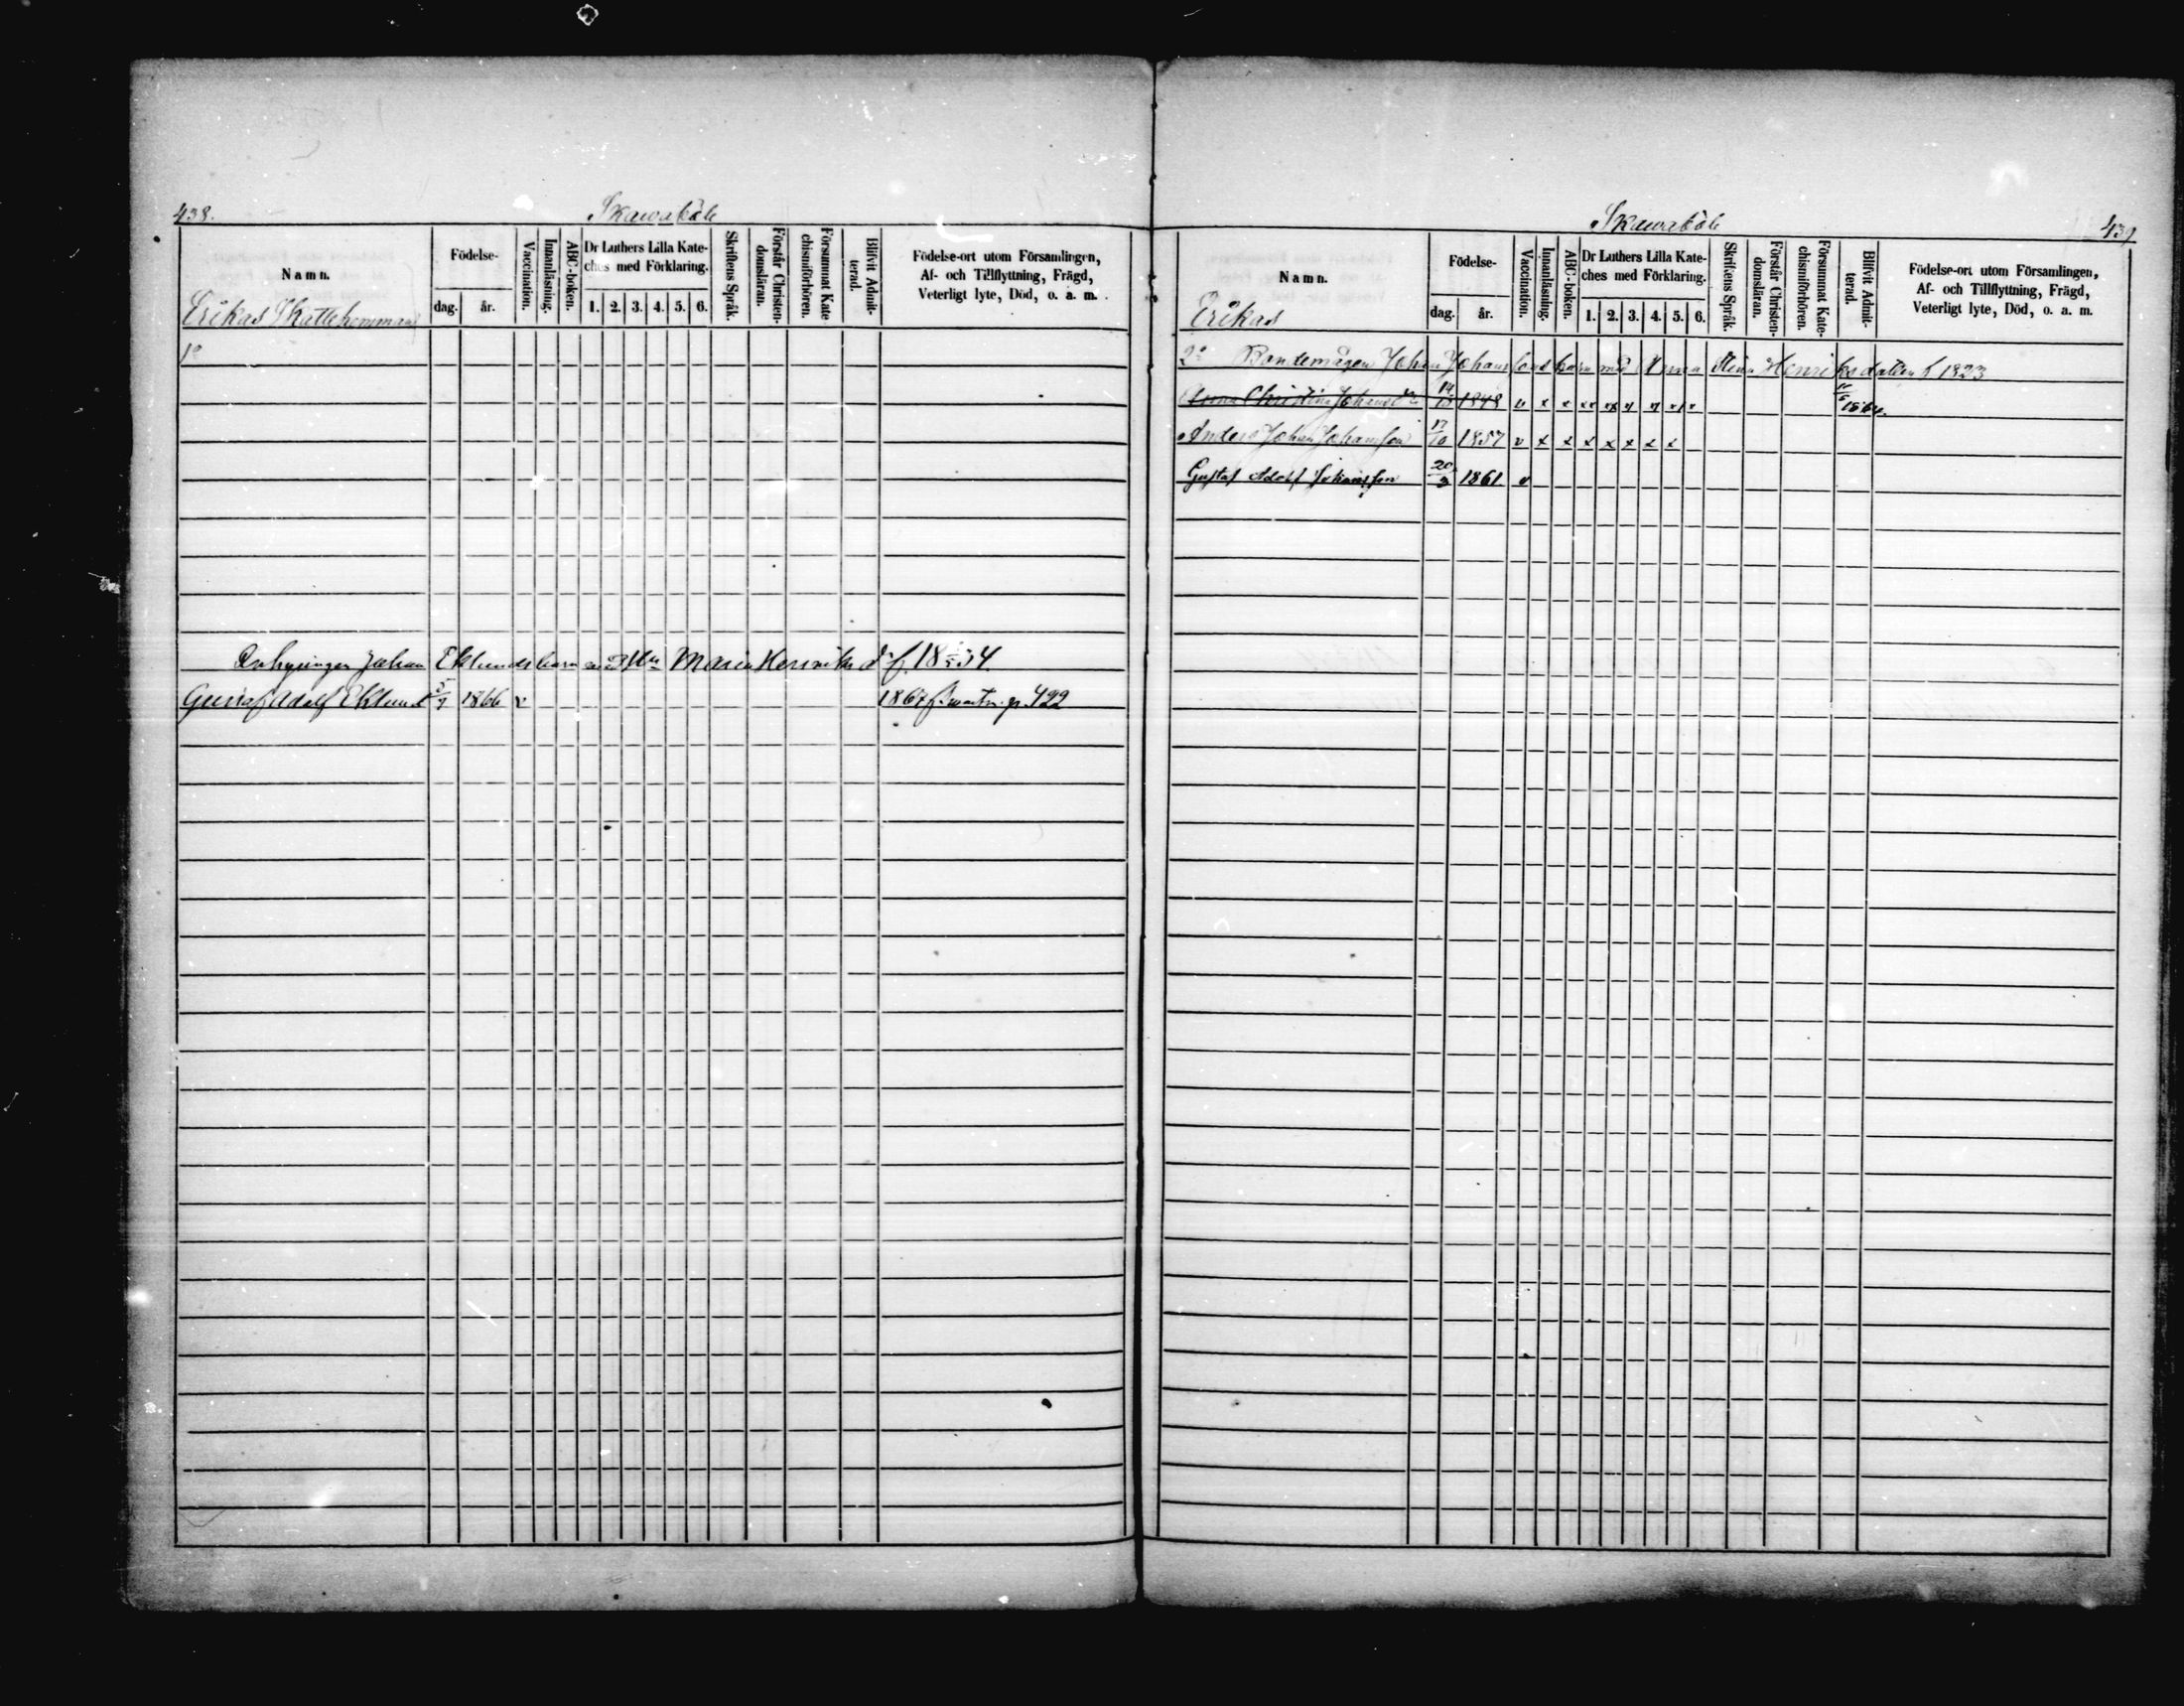 438.
Skawaböle
Namn.
Födelse-
dag.
år.
Vaccination.
Innanläsning.
ABC-boken.
Dr Luthers Lilla Kate-
ches med Förklaring.
1. 2. 3. 4. 5. 6.
Skriftens Språk.
Förstår Christen-
domsläran.
Försummat Kate
chismiförhören.
Blifvit Admit-
terad.
Födelse-ort utom Församlingen,
Af- och Tillflyttning, Frägd,
Veterligt lyte, Död, o. a. m.
Erikas Skattehemman
1o
Inhysingen Johan Eklunds barn med Maria Henriks dr f. 1834
Gustaf Adolf Eklund 5/7 1866 v 1867 p. 422
Skawaböle
439
Namn.
Födelse-
dag.
år.
Vaccination.
Innanläsning.
ABC-boken.
Dr Luthers Lilla Kate-
ches med Förklaring.
1. 2. 3. 4. 5. 6.
Skriftens Språk.
Förstår Christen-
domsläran.
Försummat Kate-
chismiförhören.
Blifvit Admit-
terad.
Födelse-ort utom Församlingen,
Af- och Tillflyttning, Frägd,
Veterligt lyte, Död, o. a. m.
Erikas
2o Bondemågen Johan Johanssons barn med Anna Stina Henriksdotter f. 1823
Anna Christina Johansdr 1848 v x x
Anders Johan Johansson 17/10 1857 v x x x x x x x
Gustaf Adolf Johansson 20/3 1861 v